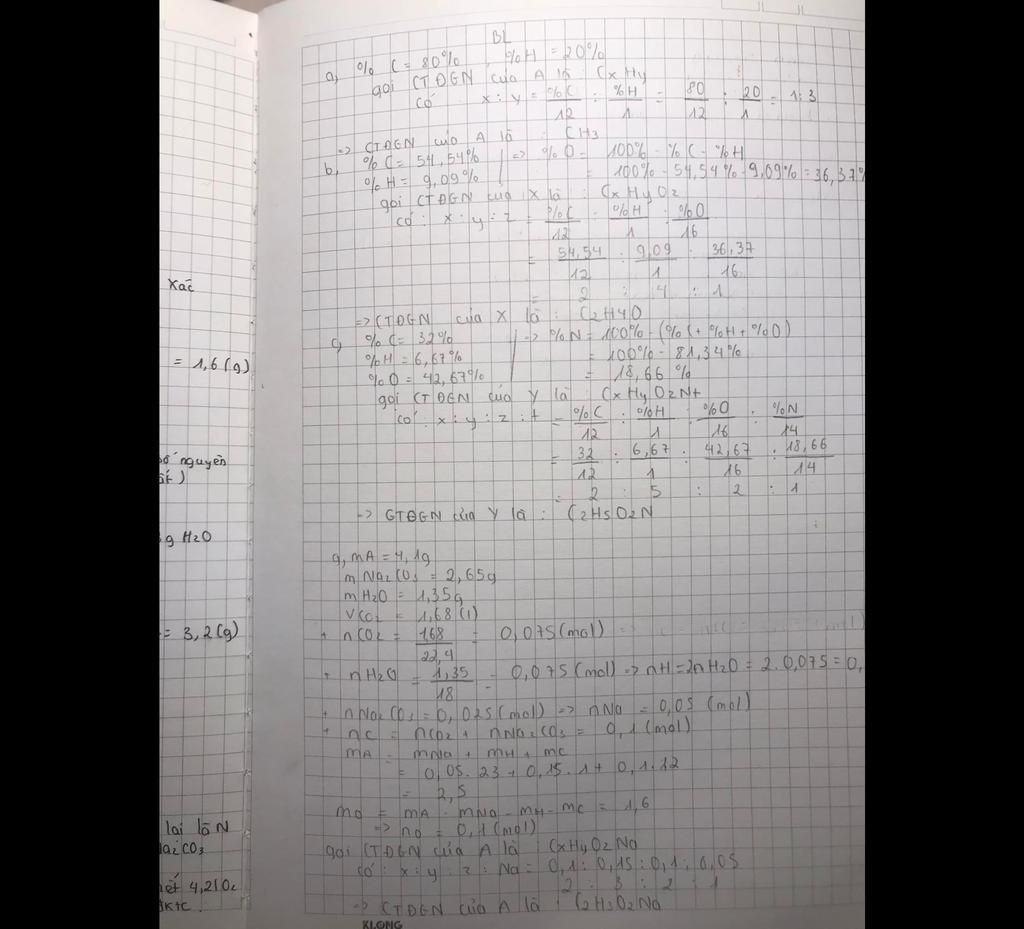 Xác
= 1,6 (g)
số nguyên
g H2O
= 3,2 (g)
lại là N
a2CO3
ết 4,2l O2
đktc
BL
a, % C = 80% , %H = 20%
gọi CTĐGN của A là : CxHy
có x : y = %C/12 : %H/1 = 80/12 : 20/1 = 1:3
=> CTĐGN của A là : CH3
b, % C = 54,54% => % O = 100% - % C - %H
% H = 9,09% = 100% - 54,54% - 9,09% = 36,37%
gọi CTĐGN của X là : CxHyOz
có : x : y : z = %C/12 : %H/1 : %O/16
= 54,54/12 : 9,09/1 : 36,37/16
= 2 : 4 : 1
=> CTĐGN của X là : C2H4O
c, % C = 32% => % N = 100% - (% C + %H + %O)
%H = 6,67% = 100% - 81,34%
%O = 42,67% = 18,66 %
gọi CTĐGN của Y là : CxHyOzNt
có : x : y : z : t = %C/12 : %H/1 : %O/16 : %N/14
= 32/12 : 6,67/1 : 42,67/16 : 18,66/14
= 2 : 5 : 2 : 1
-> CTĐGN của Y là : C2H5O2N
g, mA = 4,1g
m Na2CO3 = 2,65g
mH2O = 1,35g
VCO2 = 1,68 (l)
+ nCO2 = 1,68/22,4 = 0,075 (mol)
+ nH2O = 1,35/18 = 0,075 (mol) => nH = 2nH2O = 2.0,075 = 0,
+ nNa2CO3 = 0,025 (mol) => nNa = 0,05 (mol)
+ nC = nCO2 + nNa2CO3 = 0,1 (mol)
mA = mNa + mH + mC
= 0,05.23 + 0,15.1 + 0,1.12
= 2,5
mO = mA - mNa - mH - mC = 1,6
=> nO = 0,1 (mol)
gọi CTĐGN của A là : CxHyOzNa
có : x : y : z : Na = 0,1 : 0,15 : 0,1 : 0,05
2 : 3 : 2 : 1
=> CTĐGN của A là : C2H3O2Na
KLONG